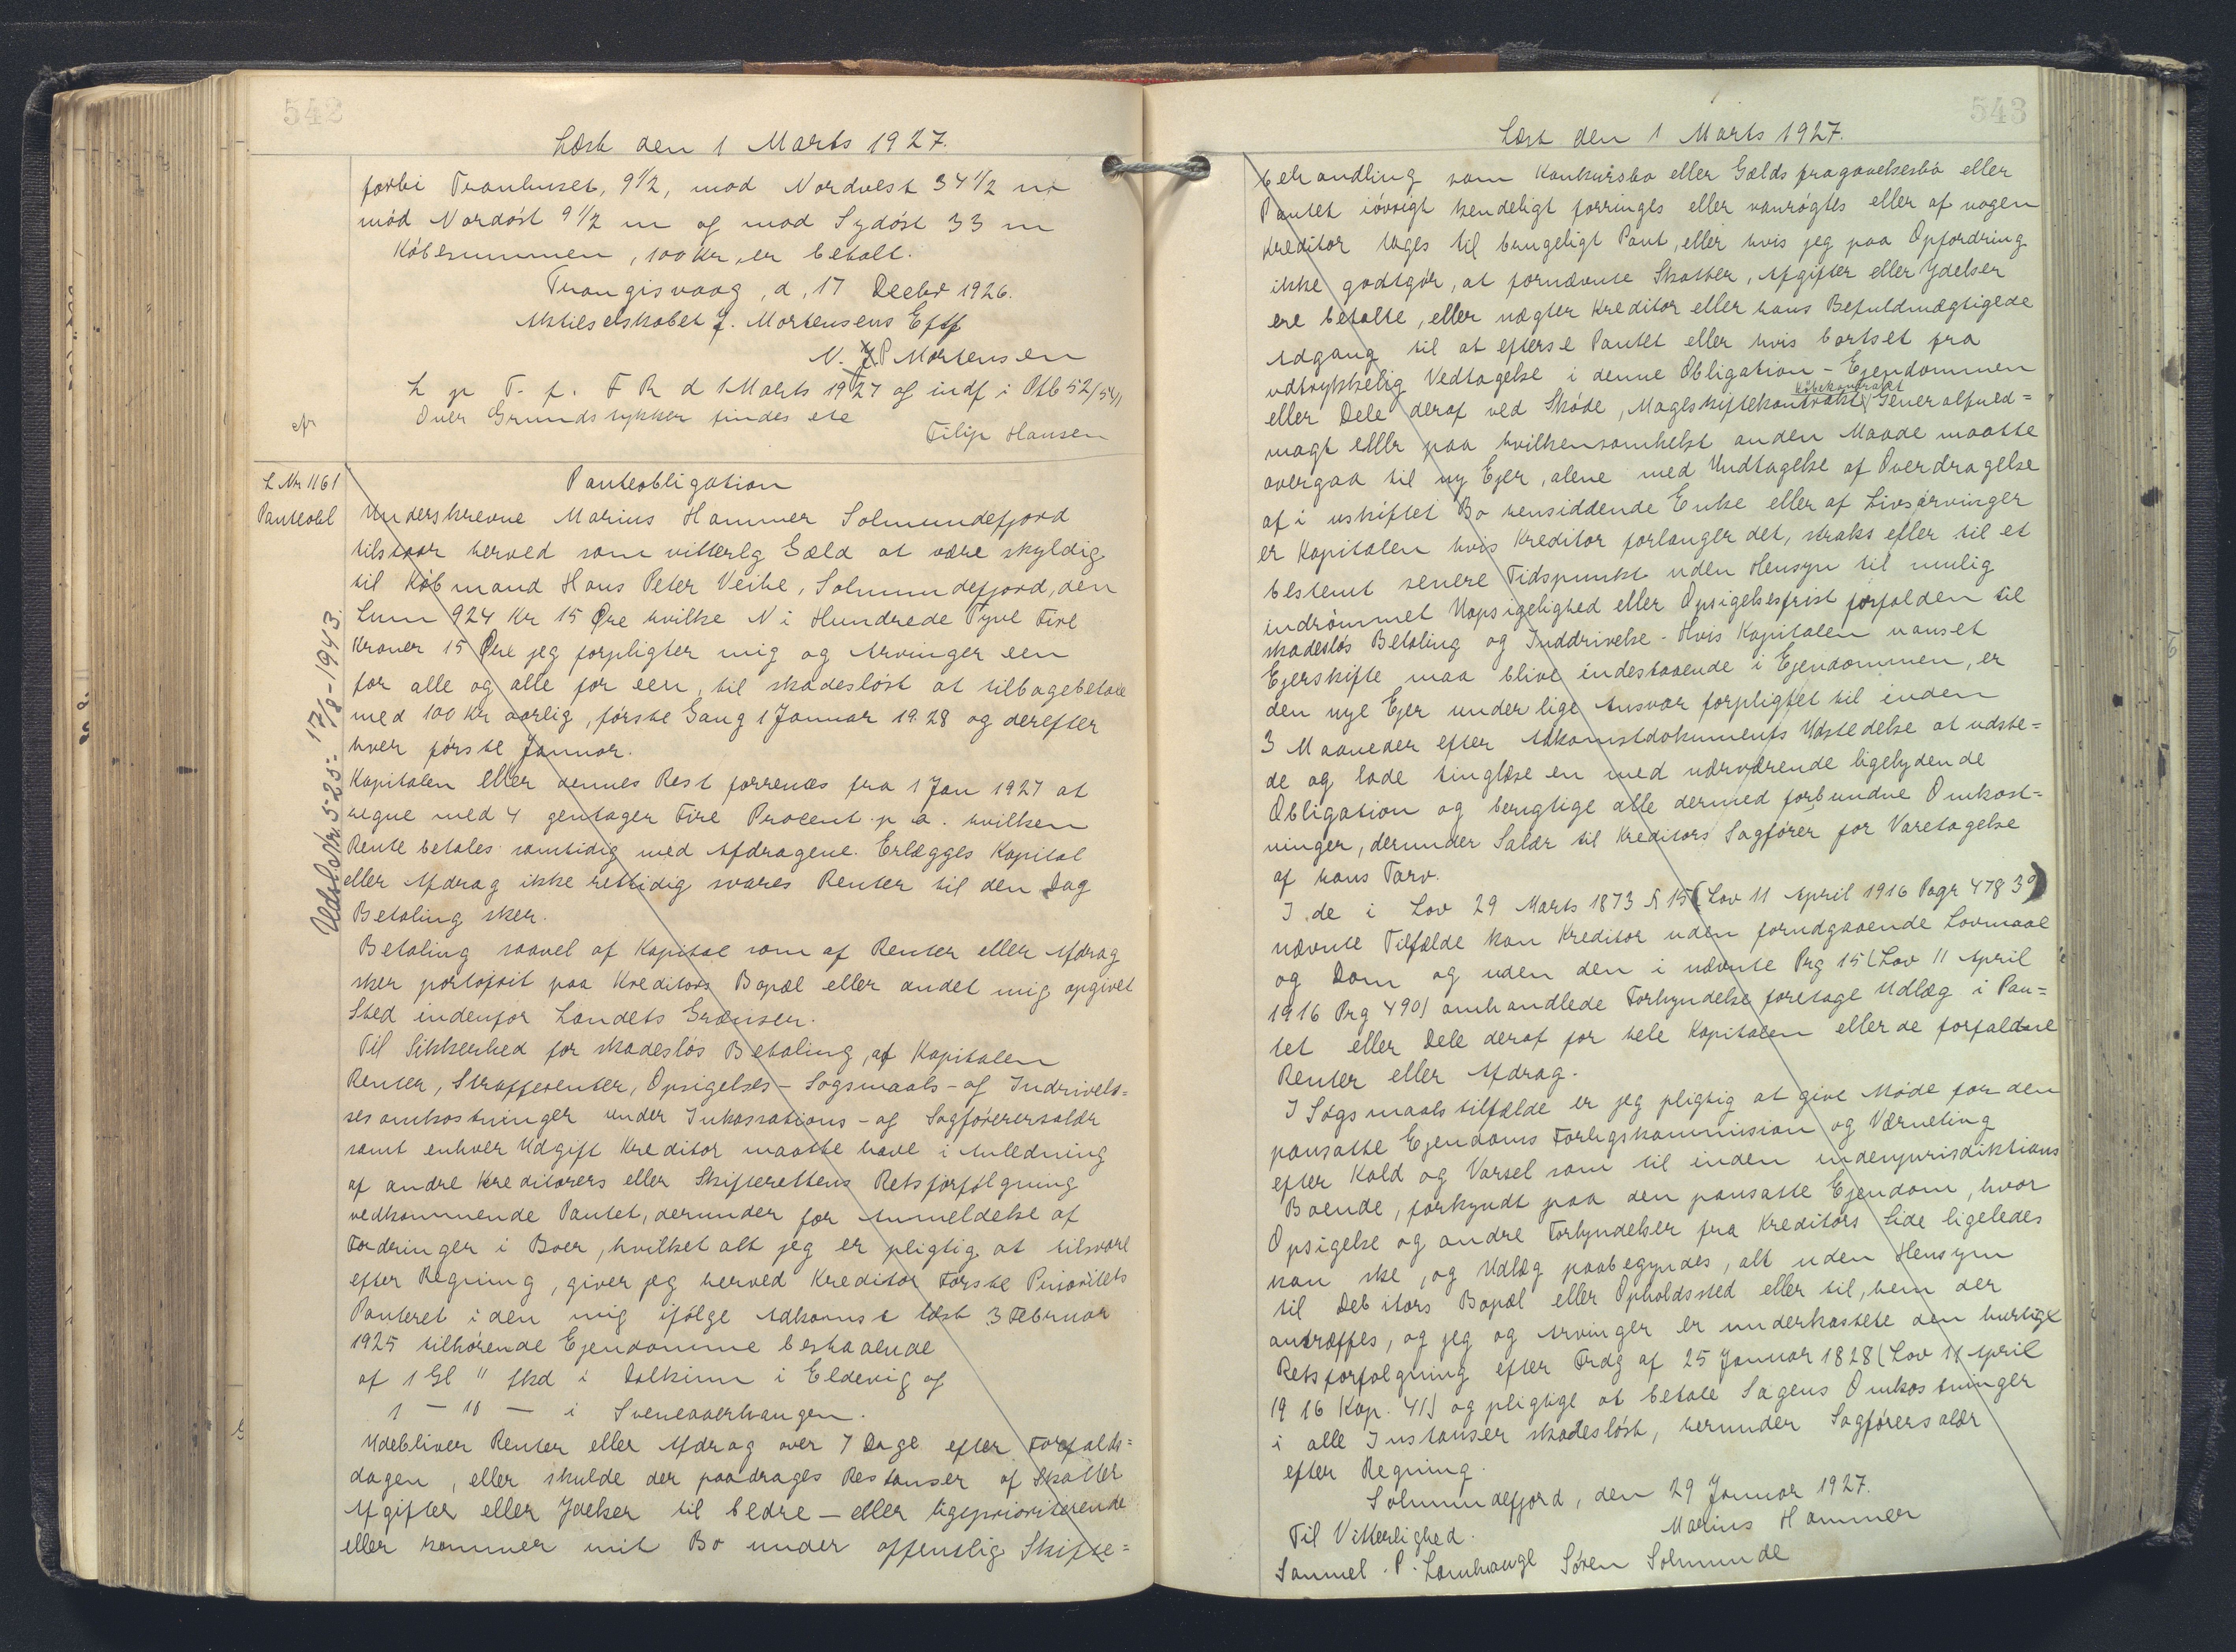 542
Læst den 1 Marts 1927.
forbi Tranhuset, 9 1/2, mod Nordvest 34 1/2 m
mod Nordöst 9 1/2 m og mod Sydöst 33 m
Köbesummen, 100 Kr, er betalt.
Trangisvaag, d, 17 Decbr 1926.
Aktieselskabet J. Mortensens Eftf
N. J P Mortensen
L p T. f. F R d 1 Marts 1927 og indf i Ptb 52/541
Over Grundstykker findes ete
Filip Hansen
L Nr 1161
Panteobl
Udslettet Nr. 525- 17/8-1943.
Panteobligation
Underskrevne Marius Hammer Solmundefjord
tilstaar herved som vitterlg Gæld at være skyldig
til Köbmand Hans Peter Veihe, Solmundefjord, den
Sum 924 Kr 15 Øre hvilke Ni Hundrede Tyve Fire
Kroner 15 Øre jeg forpligter mig og Arvinger een
for alle og alle for een, til skadeslöst at tilbagebetale
med 100 Kr aarlig, förste Gang 1 Januar 1928 og derefter
hver förste Januar.
Kapitalen eller dennes Rest forrentes fra 1 Jan 1927 at
regne med 4 gentager Fire Procent p a. hvilken
Rente betales samtidig med Afdragene. Erlægges Kapital
eller Afdrag ikke rettidig svares Renter til den Dag
Betaling sker.
Betaling saavel af Kapital som af Renter eller Afdrag
sker portofrit paa Kreditors Bopæl eller andet mig opgivet
Sted indenfor Landets Grænser.
Til Sikkerhed for skadeslös Betaling af Kapitalen
Renter, Strafferenter, Opsigelses- Sögsmaals- og Inddrivel=
sesomkostninger under Inkassations- og Sagförersalær
samt enhver Udgift Kreditor maatte have i Anledning
af andre Kreditorers eller Skifterettens Retsforfölgning
vedkommende Pantet, derunder for Anmeldelse af
Fordringer i Boer, hvilket alt jeg er pligtig at tilsvare
efter Regning, giver jeg herved Kreditor Förste Prioritets
Panteret i den mig ifölge Adkomst læst 3 Februar
1925 tilhörende Ejendomme bestaaende
af 1 Gl " Skd i Dalkinn i Eldevig og
1 - 10 - i Sveneaaerhaugen.
Udebliver Renter eller Afdrag over 7 Dage efter Forfalds=
dagen, eller skulde der paadrages Restanser af Skatter
Afgifter eller Ydelser til bedre - eller ligeprioriterende
eller kommer mit Bo under offentlig Skifte=
543
Læst den 1 Marts 1927.
behandling som Konkursbo eller Gælds fragaaelsesbo eller
Pantet iövrigt kendeligt forringes eller vanrögtes eller af nogen
Kreditor tages til brugeligt Pant, eller hvis jeg paa Opfordring
ikke godtgör, at fornævnte Skatter, Afgifter eller Ydelser
ere betalte, eller nægter Kreditor eller hans Befuldmægtigede
Adgang til at efterse Pantet eller hvis bortset fra
udtrykkelig Vedtagelse i denne Obligation - Ejendommen
eller Dele deraf ved Sköde, Mageskiftekontrakt, Köbekontrakt Generalfuld=
magt eller paa hvilkensomhelst anden Maade maatte
overgaa til ny Ejer, alene med Undtagelse af Overdragelse
af i uskiftet Bo hensiddende Enke eller af Livsarvinger
er Kapitalen hvis Kreditor forlanger det, straks eller til et
bestemt senere Tidspunkt uden Hensyn til mulig
indrömmet Uopsigelighed eller Opsigelsesfrist forfalden til
skadeslös Betaling og Inddrivelse - Hvis Kapitalen uanset
Ejerskifte maa blive indestaaende i Ejendommen, er
den nye Ejer under lige Ansvar forpligtet til inden
3 Maaneder efter Adkomstdokuments Udstedelse at udste=
de og lade tinglæse en med nærværende ligelydende
Obligation og berigtige alle dermed forbundne Omkost=
ninger, derunder Salær til Kreditors Sagförer for Varetagelse
af hans Tarv.
I de i Lov 29 Marts 1873 § 15 (Lov 11 April 1916 Pagr 478 3º)
nævnte Tilfælde kan Kreditor uden forudgaaende Lovmaal
og Dom og uden den i nævnte Prg 15 (Lov 11 April
1916 Prg 490) omhandlede Forkyndelse foretage Udlæg i Pan=
tet eller Dele deraf for hele Kapitalen eller de forfaldne
Renter eller Afdrag.
I Sögsmaalstilfælde er jeg pligtig at give Möde for den
pansatte Ejendoms Forligskommission og Værneting
efter Kald og Varsel som til inden indenjurisdiktions
Boende, forkyndt paa den pansatte Ejendom, hvor
Opsigelse og andre Forkyndelser fra Kreditors Side ligeledes
kan ske, og Udlæg paabegyndes, alt uden Hensyn
til Debitors Bopæl eller Opholdssted eller til, hem der
antræffes, og jeg og Arvinger er underkastete den hurtige
Retsforfölgning efter Frdg af 25 Januar 1828 (Lov 11 April
1916 Kap. 41) og pligtige at betale Sagens Omkostninger
i alle Instanser skadeslöst, herunder Sagförersalær
efter Regning.
Solmundefjord, den 29 Januar 1927.
Til Vitterlighed. Marius Hammer
Samuel. P. Lamhauge Sören Solmunde